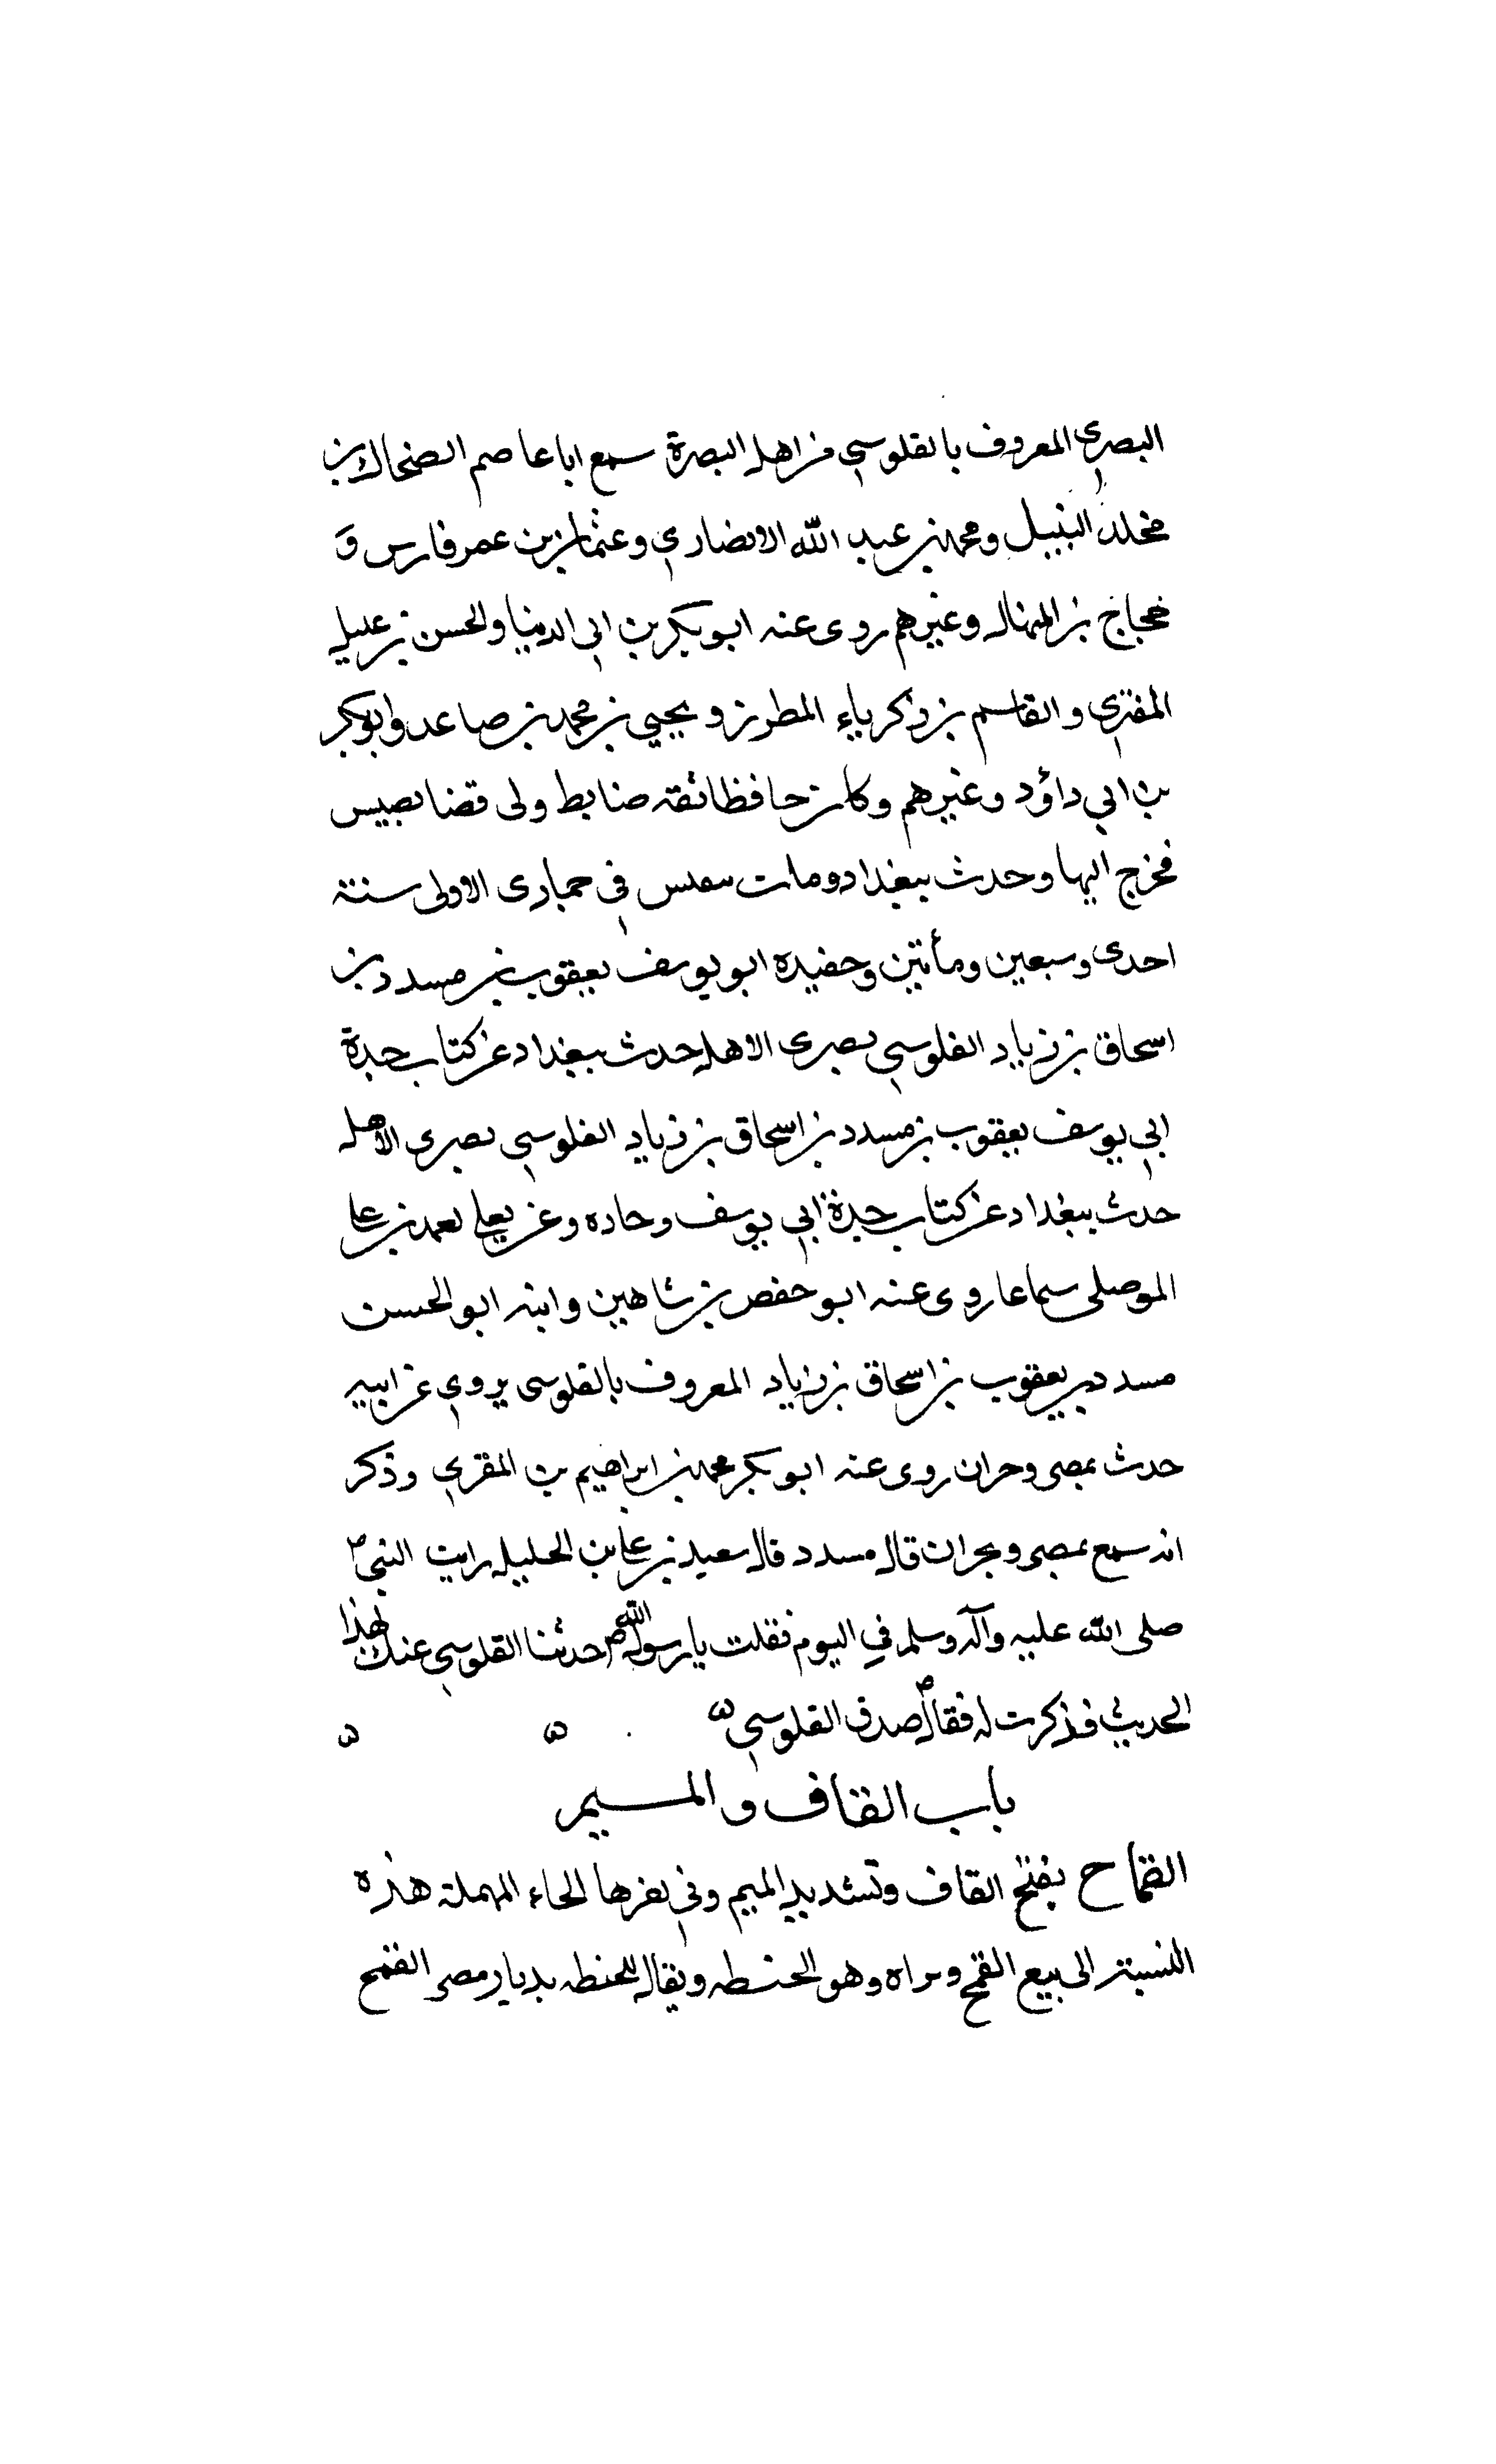 البصري المعروف بالقلوسي من اهل البصرة سمع ابا عاصم الضحاك بن
مخلد النبيل ومحمد بن عبد الله الانصاري وعثمان بن عمر فارس و
حجاج بن المنهال وغيرهم روى عنه ابو بكر بن ابي الدنيا والحسن بن عليل
المقري والقاسم بن زكرياء المطرز ويحيى بن محمد بن صاعد وابو بكر
بن ابي داؤد وغيرهم وكان حافظا ثقة ضابط ولى قضا نصيبين
فخرج اليها وحدث ببغداد ومات في جمادى الاولى سنة
احدى وسبعين ومأتين وحفيده ابو يوسف يعقوب بن مسدد بن
اسحاق بن زياد القلوسي بصرى الاهل حدث ببغداد عن كتاب جدة
ابي يوسف يعقوب بن مسدد بن اسحاق بن زياد القلوسي بصرى الاهل
حدث ببغداد عن كتاب جدة ابي يوسف وحاده وعن يعلى بن على
الموصلى سماعا روى عنه ابو حفص بن شاهين وابنه ابو الحسن
مسدد بن يعقوب بن اسحاق بن زياد المعروف بالقلوسى يروي عن ابيه
حدث بمصر وحران روى عنه ابو بكر محمد بن ابراهيم بن المقري وذكر
انه سمع بمصر وبحران قال مسدد قال سعيد بن على بن الخليل رايت النبي
صلى الله عليه وآله وسلم في اليوم فقلت يا رسول الله حدثنا القلوسي عنك لهذا
الحديث فذكرت له فقال صدق القلوسي
باب القاف والميم
القماح بفتح القاف وتشديد الميم وفي اخرها الحاء المهملة هذه
النسبة الى بيع القمح وشراه وهو الحنطه ويقال للحنطه بديار مصر القمح